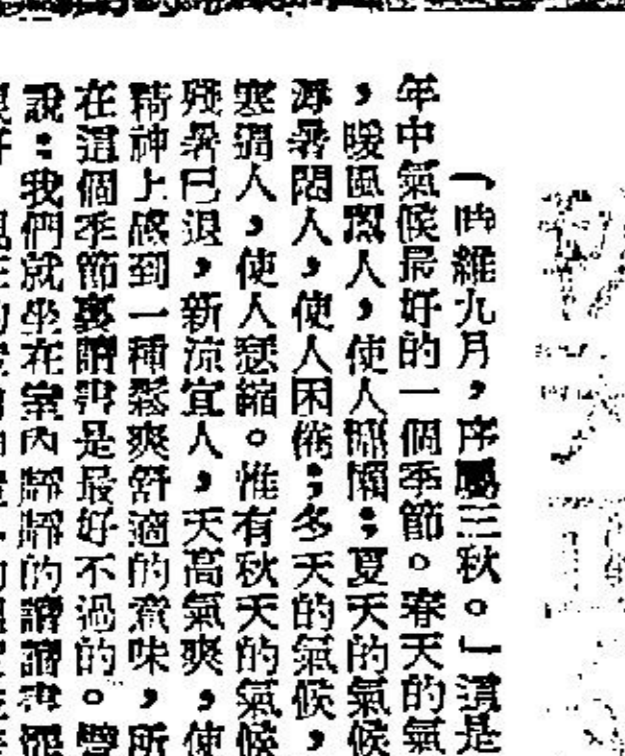 「時維九月，序屬三秋。」這是
年中氣候最好的一個季節。春天的氣
，暖風熏人，使人慵懶；夏天的氣候
溽暑悶人，使人困倦；冬天的氣候，
寒逼人，使人瑟縮。惟有秋天的氣候
殘暑已退，新涼宜人，天高氣爽，使
精神上感到一種鬆爽舒適的意味，所
在這個季節裏讀書是最好不過的。譬
說：我們就坐在室內靜靜的讀讀書罷